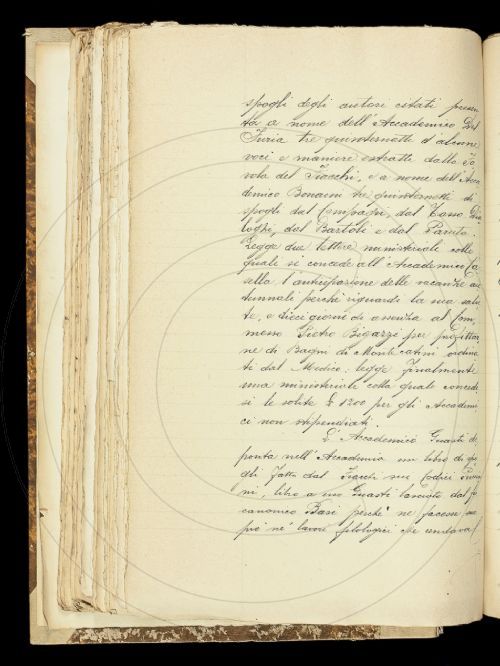 spogli degli autori citati presen
ta a nome dell'Accademico Del
Furia tre quinternetti d'alcune
voci e maniere estratte dalla Ta
vola del Fiacchi, e a nome dell'Acca
demico Bonaini tre quinternetti di
spogli dal Compagni, dal Tasso Dia
loghi, dal Bartoli e dal Paruta.
Legge due lettere ministeriali colle
quali si concede all'Accademico Ca
sella l'anticipazione delle vacanze au
tunnali perchè riguardi la sua salu
te, e dieci giorni di assenza al Com
messo Pietro Bigazzi per profittar
ne di Bagni di Monte Catini ordina
ti dal Medico: legge finalmente
una ministeriale colla quale concede
si le solite £ 1200 per gli Accademi
ci non stipendiati.
L'Accademico Guasti de
ponta nell'Accademia un libro di spo
gli fatti dal Fiacchi su codici
ni, libro a esso Guasti lasciato dal
canonico Basi perchè ne facesse
pro' ne' lavori filologici che